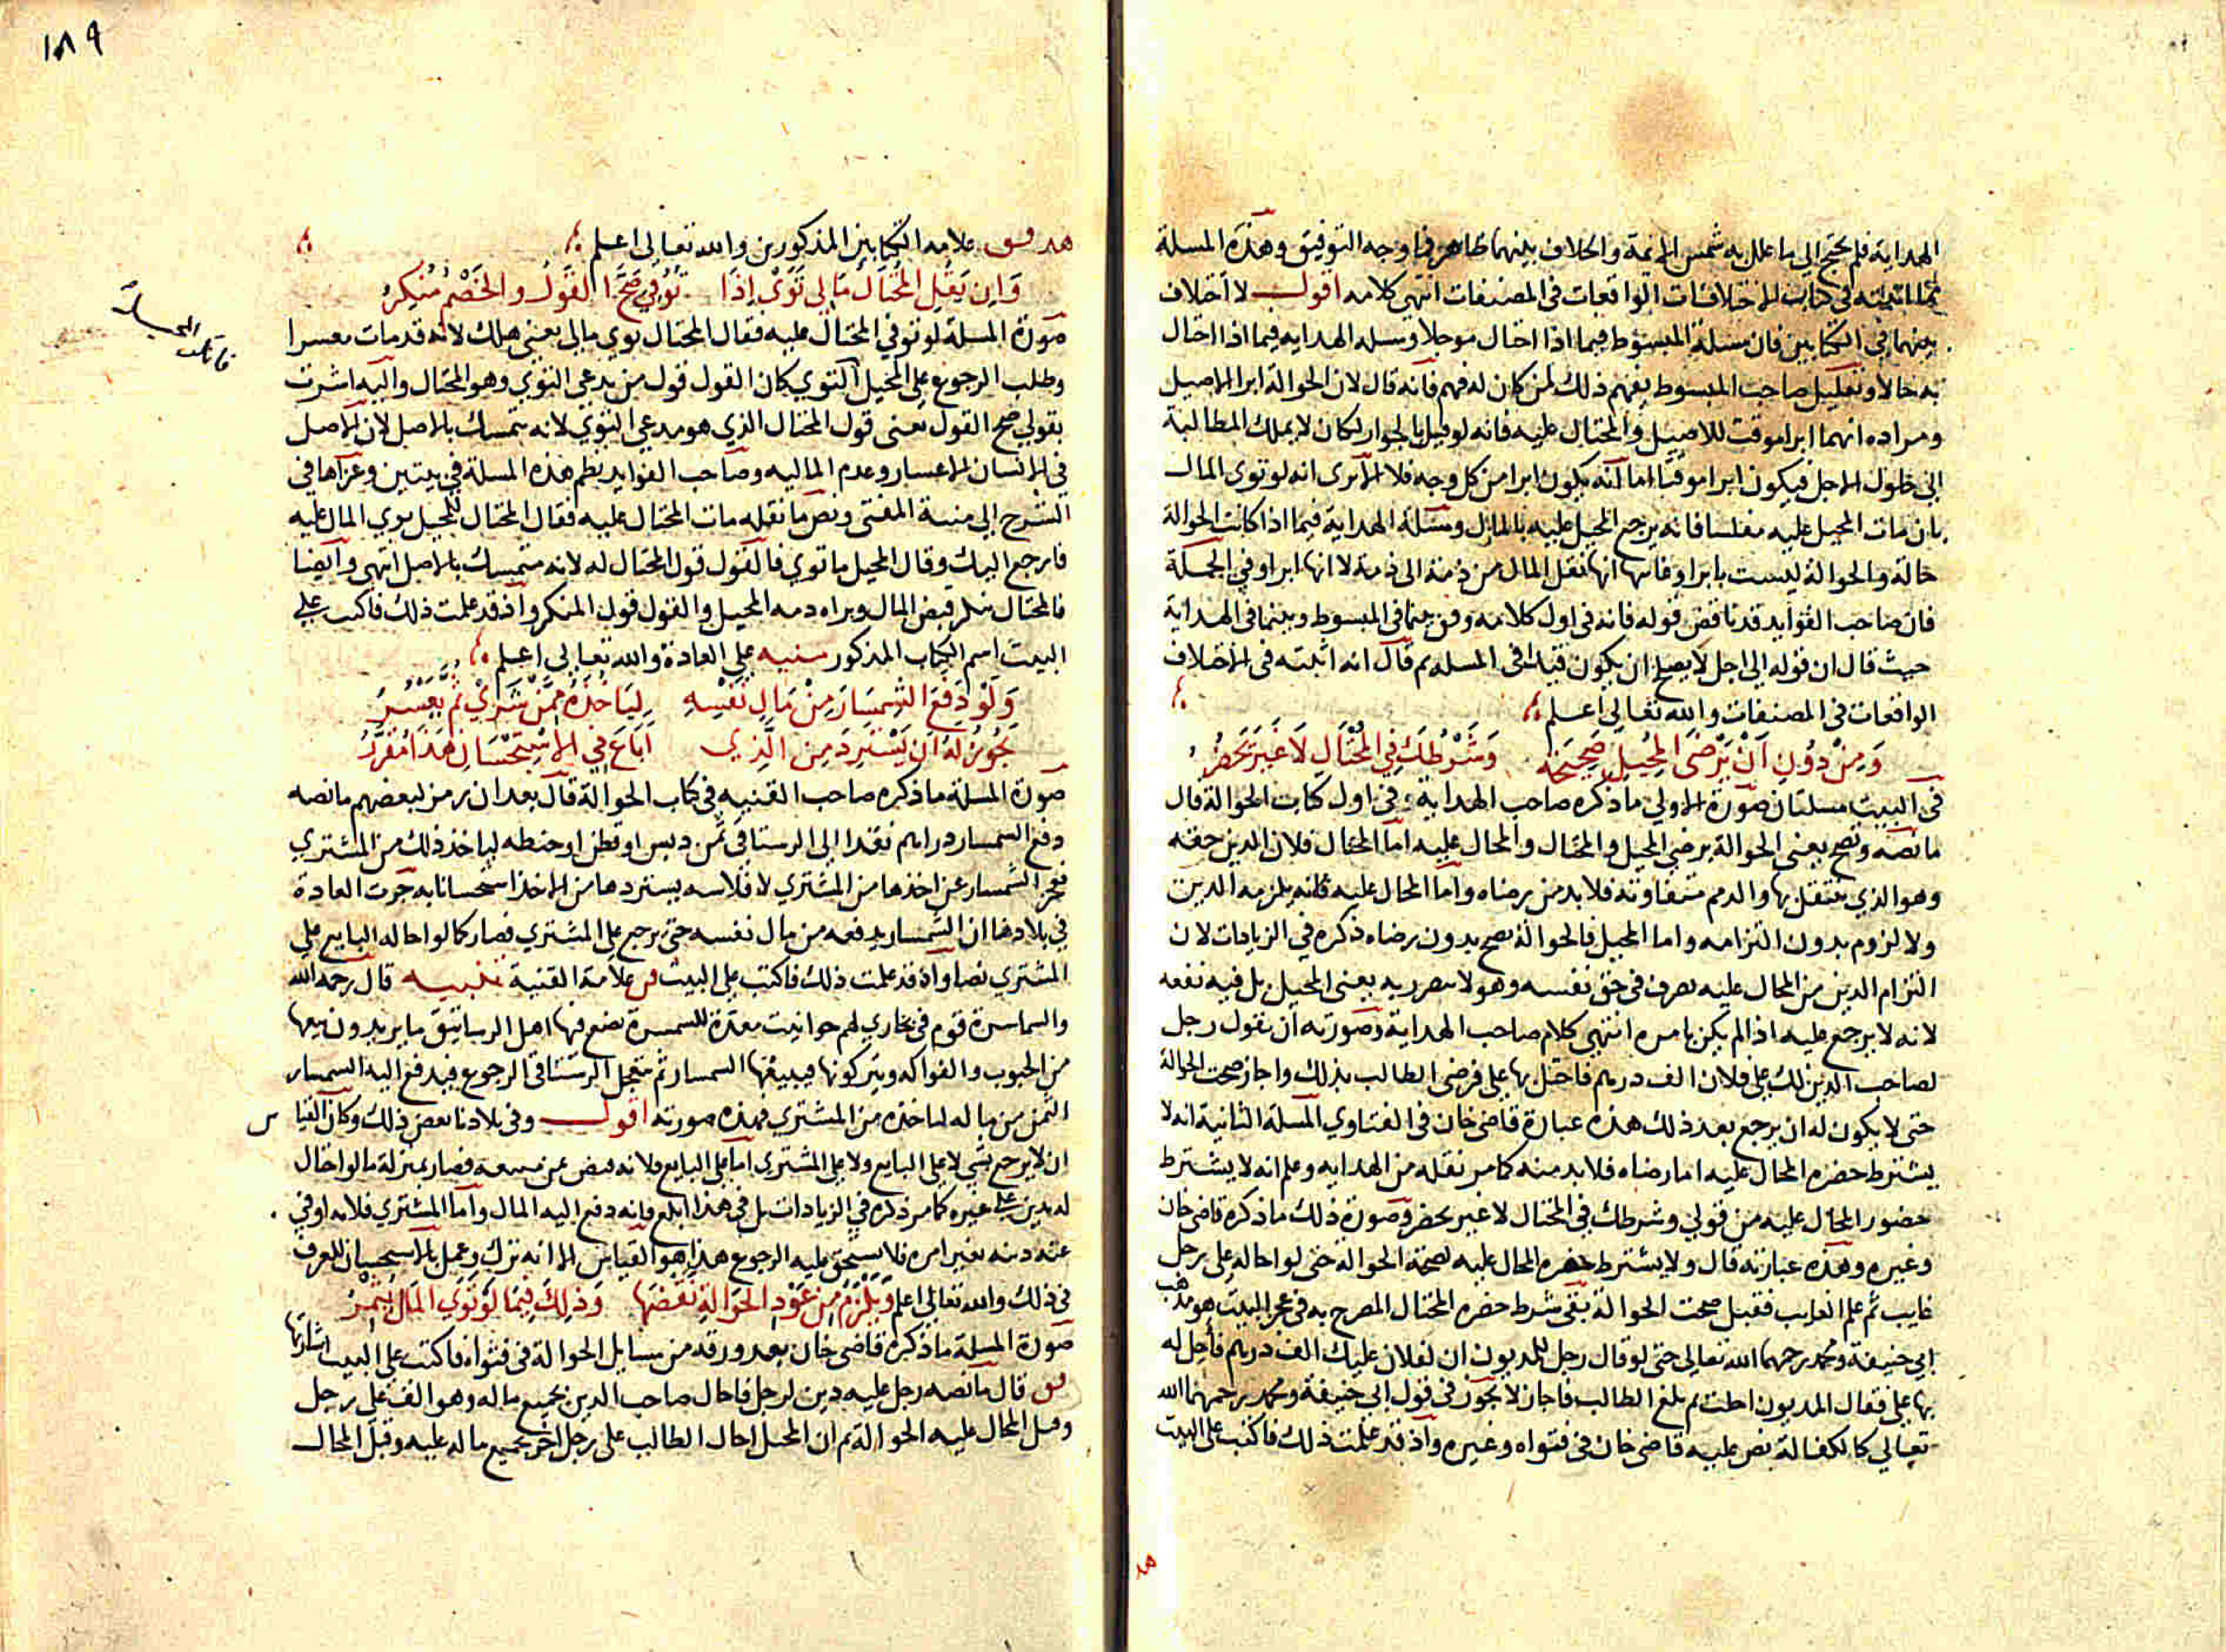 الهداية فلم يحتج الى ما علل به شمس الائمة والخلاف بينهما ظاهر فما وجه التوفيق وهذه المسلة
مما اثبته في كتاب الاختلافات الواقعات في المصنفات انتهى كلامه اقول لا اختلاف
بينهما في الكتابين فان مسلة المبسوط فيما اذا احتال موجلا ومسله الهدايه فيما اذا احتال
به حالا وتعليل صاحب المبسوط يفهم ذلك لمن كان له فهم فانه قال لان الحوالة ابرا الاصيل
ومراده انهما ابرا موقت للاصيل والمحتال عليه فانه لو قيل بالجواز لكان لا يملك المطالبة
الى حلول الاجل فيكون ابرا موقتا اما انه يكون ابرا من كل وجه فلا الا ترى انه لو توى المال
بان مات المحيل عليه مفلسا فانه يرجع المحيل عليه بالمال ومسلة الهداية فيما اذا كانت الحوالة
حالة والحوالة ليست بابرا وغايتها انها نقل المال من ذمة الى ذمة لا انها ابرا وفي الجملة
فان صاحب الفوايد قد ناقض قوله فانه في اول كلامه وفق بينها في المبسوط وبينها في الهداية
حيث قال ان قوله الى اجل لا يصلح ان يكون قيدا في المسله ثم قال انه اثبته في الاختلاف
الواقعات في المصنفات والله تعالى اعلم
وَمِنْ دُونِ اَنْ يَرْضَى المُحِيلُ صَحِيحَةٌ وَشَرْطُكَ فِي المُحْتَالِ لَا غَيرَ يَحضُرُ
في البيت مسلتان صورة الاولى ما ذكره صاحب الهداية في اول كتاب الحوالة قال
ما نصه وتصح يعني الحوالة برضى المحيل والمحتال والمحال عليه اما المحتال فلان الدين حقه
وهو الذي ينتقل بها والذمم متفاوته فلا بد من رضاه واما المحال عليه فانه يلزمه الدين
ولا لزوم بدون التزامه واما المحيل فالحوالة تصح بدون رضاه ذكره في الزيادات لان
التزام الدين من المحال عليه تصرف في حق نفسه وهو لا يتضرر به يعني المحيل بل فيه نفعه
لانه لا يرجع عليه اذا لم يكن بامره انتهى كلام صاحب الهداية وصورته ان يقول رجل
لصاحب الدين لك على فلان الف درهم فاحتل بها علي فرضى الطالب بذلك واجاز صحت الحوالة
حتى لا يكون له ان يرجع بعد ذلك هذه عبارة قاضى خان في الفتاوي المسلة الثانية انه لا
يشترط حضرة المحال عليه اما رضاه فلا بد منه كما مر نقله من الهدايه وعلم انه لا يشترط
حضور المحال عليه من قولي وشرطك في المحتال لا غير يحضر وصورة ذلك ما ذكره قاضى خان
وغيره وهذه عبارته قال ولا يشترط حضرة المحال عليه لصحة الحوالة حتى لو احاله على رجل
غايب ثم علم الغايب فقبل صحت الحوالة بقى شرط حضرة المحتال المصرح به في عجز البيت هو مذهب
ابي حنيفة ومحمد رحمهما الله تعالى حتى لو قال رجل للمديون ان لفلان عليك الف درهم فاحل له
بها علي فقال المديون احلت ثم بلغ الطالب فاجاز لا يجوز في قول ابي حنيفة ومحمد رحمهما الله
تعالى كالكفالة نص عليه قاضى خان في فتواه وغيره واذ قد علمت ذلك فاكتب على البيت
هد
١٨٩
هد فق علامه الكتابين المذكورين والله تعالى اعلم
وَاِن يَقُلِ المُحتَالُ مَالِى تَوَى اِذَا تُوُفِّي صَحَّ القَولُ والخَصْمُ مُنكِرُ
صورة المسلة لو توفي المحتال عليه فقال المحتال توي مالى يعنى هلك لانه قد مات معسرا
وطلب الرجوع على المحيل بالتوي كان القول قول من يدعي التوي وهو المحتال واليه اشرت
بقولي صح القول يعنى قول المحتال الذي هو مدعي التوي لانه يتمسك بالاصل لان الاصل
في الانسان الاعسار وعدم الماليه وصاحب الفوايد نظم هذه المسلة في بيتين وعزاها في
الشرح الى منية المفتى ونص ما نقله مات المحتال عليه فقال المحتال للمحيل توي المال عليه
فارجع اليك وقال المحيل ما توي فالقول قول المحتال له لانه متمسك بالاصل انتهى وايضا
فالمحتال ينكر قبض المال وبراه ذمه المحيل والقول قول المنكر واذ قد علمت ذلك فاكتب على
البيت اسم الكتاب المذكور منيه على العادة والله تعالى اعلم
وَلَوْ دَفَعَ السِّمسَارُ مِنْ مَالِ نَفسِهِ لِيَاخُذَهُ مِمَّنْ شَرَى ثُمَّ يَعْسُرُ
يَجُوزُ لَهُ اَن يَسْتَرِدَّ مِنَ الَّذِي اَبَاعَ فِي الاِسْتِحْسَانِ هَذَا مُقَرَّرُ
صورة المسلة ما ذكره صاحب القنيه في كتاب الحوالة قال بعد ان رمز لبعضهم ما نصه
دفع السمسار دراهم نقدا الى الرستاقى ثمن دبس او قطن او حنطه لياخذ ذلك من المشتري
فعجز السمسار عن اخذها من المشتري لافلاسه يستردها من الاخذ استحسانا به جرت العادة
في بلادها ان السمسار يدفعه من مال نفسه حتى يرجع على المشتري فصار كما لو احاله البايع على
المشتري نصا واذ قد علمت ذلك فاكتب على البيت فن علامة القنية تنبيه قال رحمه الله
والسماسرة قوم في بخاري لهم حوانيت معدة للسمسرة يضع فيها اهل الرساتيق ما يريدون بيعها
من الحبوب والفواكه ويتركونها فيبيعها السمسار ثم يتعجل الرستاقى الرجوع فيدفع اليه السمسار
الثمن من ماله لياخذه من المشتري فهذه صورته اقول وفي بلادنا بعض ذلك وكان القيا س
ان لا يرجع بشي لا على البايع ولا على المشتري اما على البايع فلانه قبض عن مبيعه فصار بمنزلة ما لو احال
له بدين على غيره كما مر ذكره في الزيادات بل في هذا ابلغ فانه دفع اليه المال واما المشتري فلانه اوفي
عنه دينه بغير امره فلا يستحق عليه الرجوع هذا هو القياس الا انه ترك وعمل بالاستحسان للعرف
في ذلك والله تعالى اعلم وَيَلْزَمُ مِنْ عَوْدِ الحَوَالَةِ نَقْضُهَا وَذَلِكَ فِيمَا لَوْ تَوَي المَالُ يُثْمِرُ
صورة المسلة ما ذكره قاضى خان بعد ورقه من مسايل الحوالة في فتواه فاكتب على البيت اشارتها
فق قال ما نصه رجل عليه دين لرجل فاحال صاحب الدين بجميع ماله وهو الف على رجل
وقبل المحال عليه الحوالة ثم ان المحيل احال الطالب على رجل اخر بجميع ماله عليه وقبل المحال